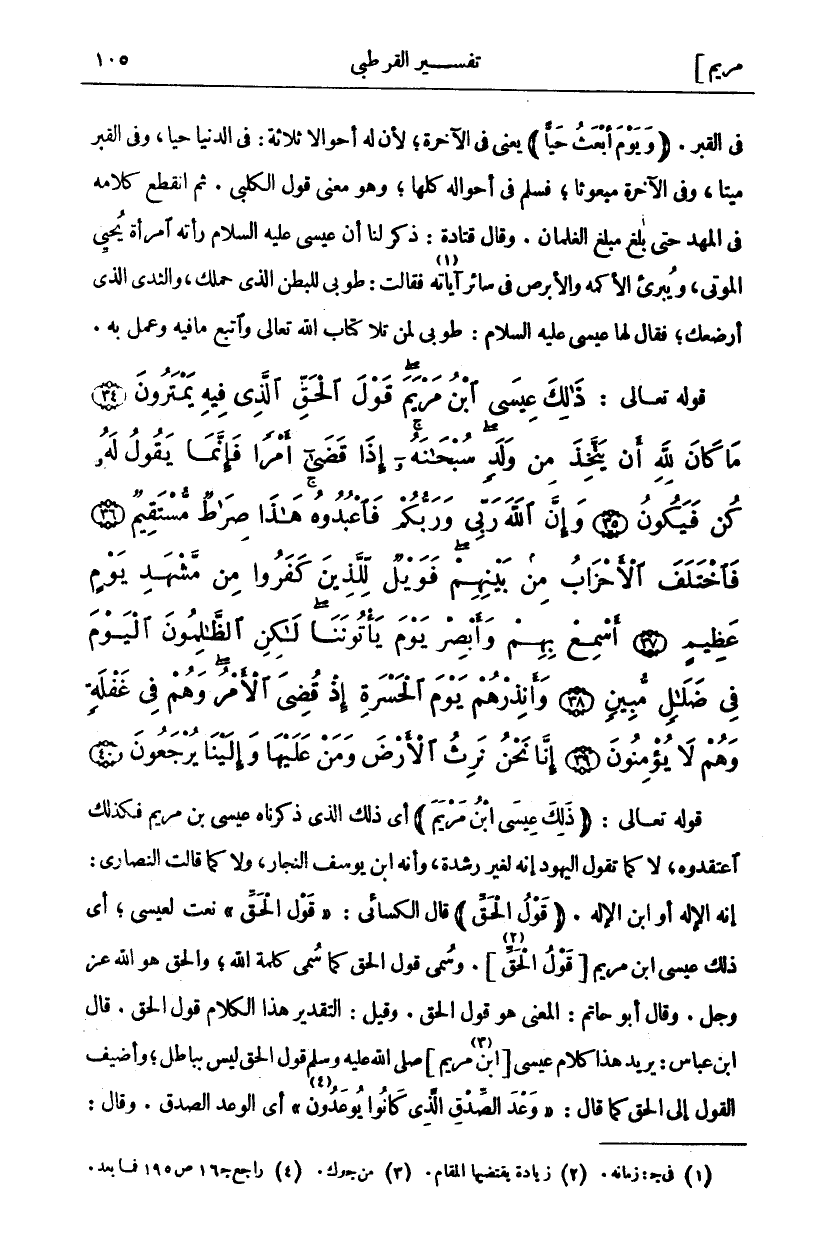 مريم] تفسير القرطبى ١٠٥
فى القبر . ﴿ وَيَوْمَ أُبْعَثُ حَيًّا ﴾ يعنى فى الآخرة ؛ لأن له أحوالا ثلاثة : فى الدنيا حيا ، وفى القبر
ميتا ، وفى الآخرة مبعوثا ؛ فسلم فى أحواله كلها ؛ وهو معنى قول الكلبى . ثم انقطع كلامه
فى المهد حتى بلغ مبلغ الغلمان . وقال قتادة : ذكر لنا أن عيسى عليه السلام رأته آمرأة يُحيي
الموتى ، ويُبرئ الأكمه والأبرص فى سائر آياته (١) فقالت : طوبى للبطن الذى حملك ، والثدى الذى
أرضعك ؛ فقال لها عيسى عليه السلام : طوبى لمن تلا كتاب الله تعالى وآتبع مافيه وعمل به .
قوله تعالى : ذَٰلِكَ عِيسَى ٱبْنُ مَرْيَمَ ۖ قَوْلَ ٱلْحَقِّ ٱلَّذِى فِيهِ يَمْتَرُونَ ﴿٣٤﴾
مَا كَانَ لِلَّهِ أَن يَتَّخِذَ مِن وَلَدٍ ۖ سُبْحَٰنَهُۥٓ ۚ إِذَا قَضَىٰٓ أَمْرًا فَإِنَّمَا يَقُولُ لَهُۥ
كُن فَيَكُونُ ﴿٣٥﴾ وَإِنَّ ٱللَّهَ رَبِّى وَرَبُّكُمْ فَٱعْبُدُوهُ ۚ هَٰذَا صِرَٰطٌ مُّسْتَقِيمٌ ﴿٣٦﴾
فَٱخْتَلَفَ ٱلْأَحْزَابُ مِنۢ بَيْنِهِمْ ۖ فَوَيْلٌ لِّلَّذِينَ كَفَرُوا مِن مَّشْهَدِ يَوْمٍ
عَظِيمٍ ﴿٣٧﴾ أَسْمِعْ بِهِمْ وَأَبْصِرْ يَوْمَ يَأْتُونَنَا ۖ لَٰكِنِ ٱلظَّٰلِمُونَ ٱلْيَوْمَ
فِى ضَلَٰلٍ مُّبِينٍ ﴿٣٨﴾ وَأَنذِرْهُمْ يَوْمَ ٱلْحَسْرَةِ إِذْ قُضِىَ ٱلْأَمْرُ ۖ وَهُمْ فِى غَفْلَةٍ
وَهُمْ لَا يُؤْمِنُونَ ﴿٣٩﴾ إِنَّا نَحْنُ نَرِثُ ٱلْأَرْضَ وَمَنْ عَلَيْهَا وَإِلَيْنَا يُرْجَعُونَ ﴿٤٠﴾
قوله تعالى : ﴿ ذَلِكَ عِيسَى ابْنُ مَرْيَمَ ﴾ أى ذلك الذى ذكرناه عيسى بن مريم فكذلك
آعتقدوه ، لا كما تقول اليهود إنه لغير رشدة ، وأنه ابن يوسف النجار ، ولا كما قالت النصارى :
إنه الإله أو ابن الإله . ﴿ قَوْلُ الْحَقِّ ﴾ قال الكسائى : « قَوْل الحَقّ » نعت لعيسى ؛ أى
ذلك عيسى ابن مريم [ قَوْلُ الْحَقِّ (٢) ] . وسُمى قول الحق كما سُمى كلمة الله ؛ والحق هو الله عز
وجل . وقال أبو حاتم : المعنى هو قول الحق . وقيل : التقدير هذا الكلام قول الحق . قال
ابن عباس : يريد هذا كلام عيسى [ ابن مريم (٣) ] صلى الله عليه وسلم قول الحق ليس بباطل ؛ وأضيف
القول إلى الحق كما قال : « وَعْدَ الصِّدْقِ الَّذِى كَانُوا يُوعَدُونَ (٤) » أى الوعد الصدق . وقال :
(١) فى جـ : زمانه . (٢) زيادة يقتضيها المقام . (٣) من جوك . (٤) راجع جـ ١٦ ص ١٩٥ فما بعد .